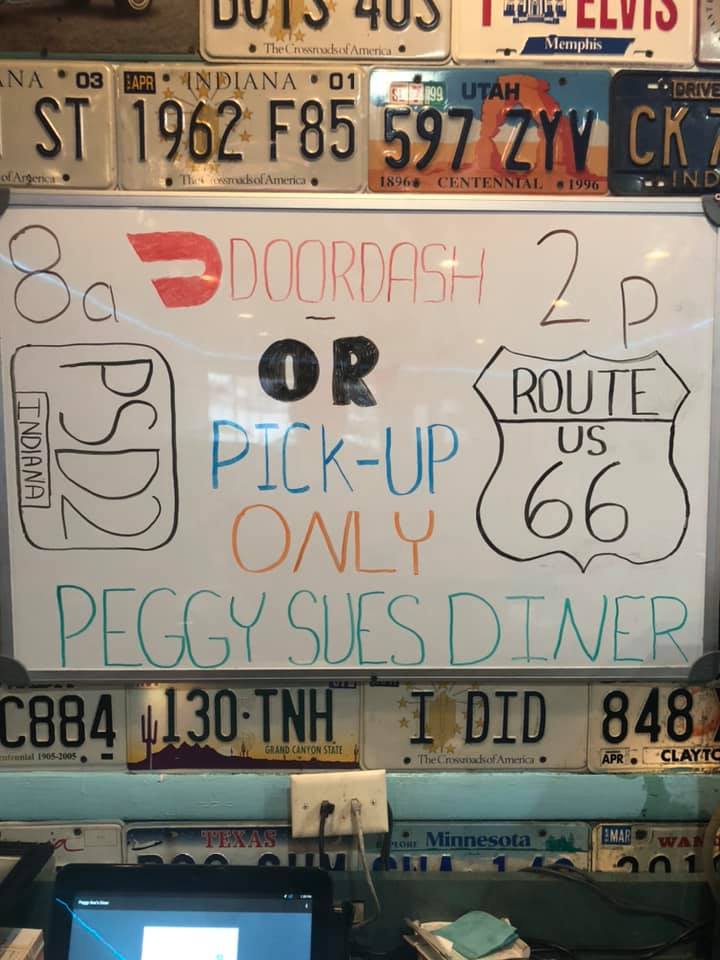 BOYS 4US
The Crossroads of America
ELVIS
Memphis
ANA 03
ST
of America
APR INDIANA 01
1962 F85
The Crossroads of America
99 UTAH
597 ZYV
1896 CENTENNIAL 1996
DRIVE
CK 7
IND
8a DOORDASH 2p
OR
PICK-UP
ONLY
PSD2
INDIANA
ROUTE
US
66
PEGGY SUES DINER
C884
Centennial 1905-2005
130·TNH
GRAND CANYON STATE
I DID
The Crossroads of America
848
APR CLAYTO
TEXAS
PLORE Minnesota
MAR WAR
Peggy Sue's Diner